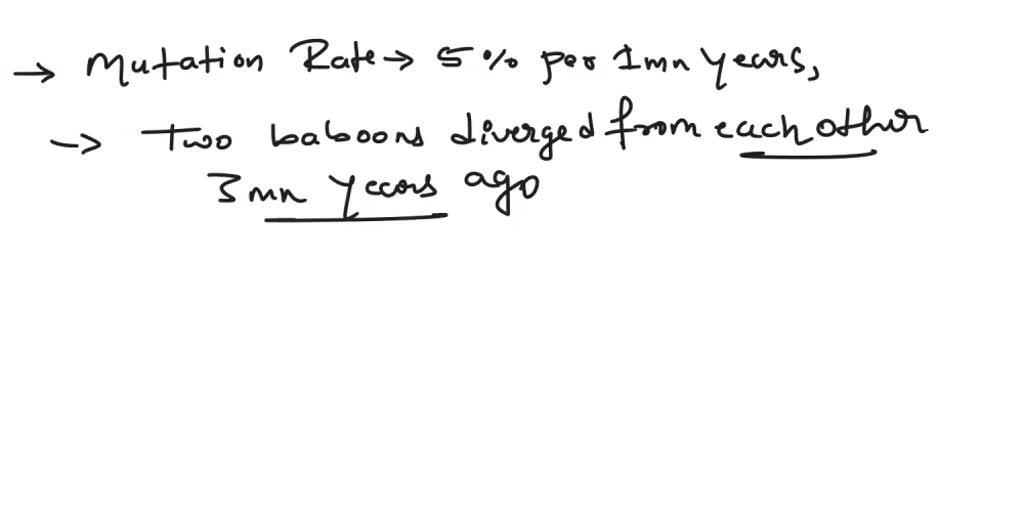 → Mutation Rate → 5% per 1mn years,
→ Two baboons diverged from each other
3mn years ago